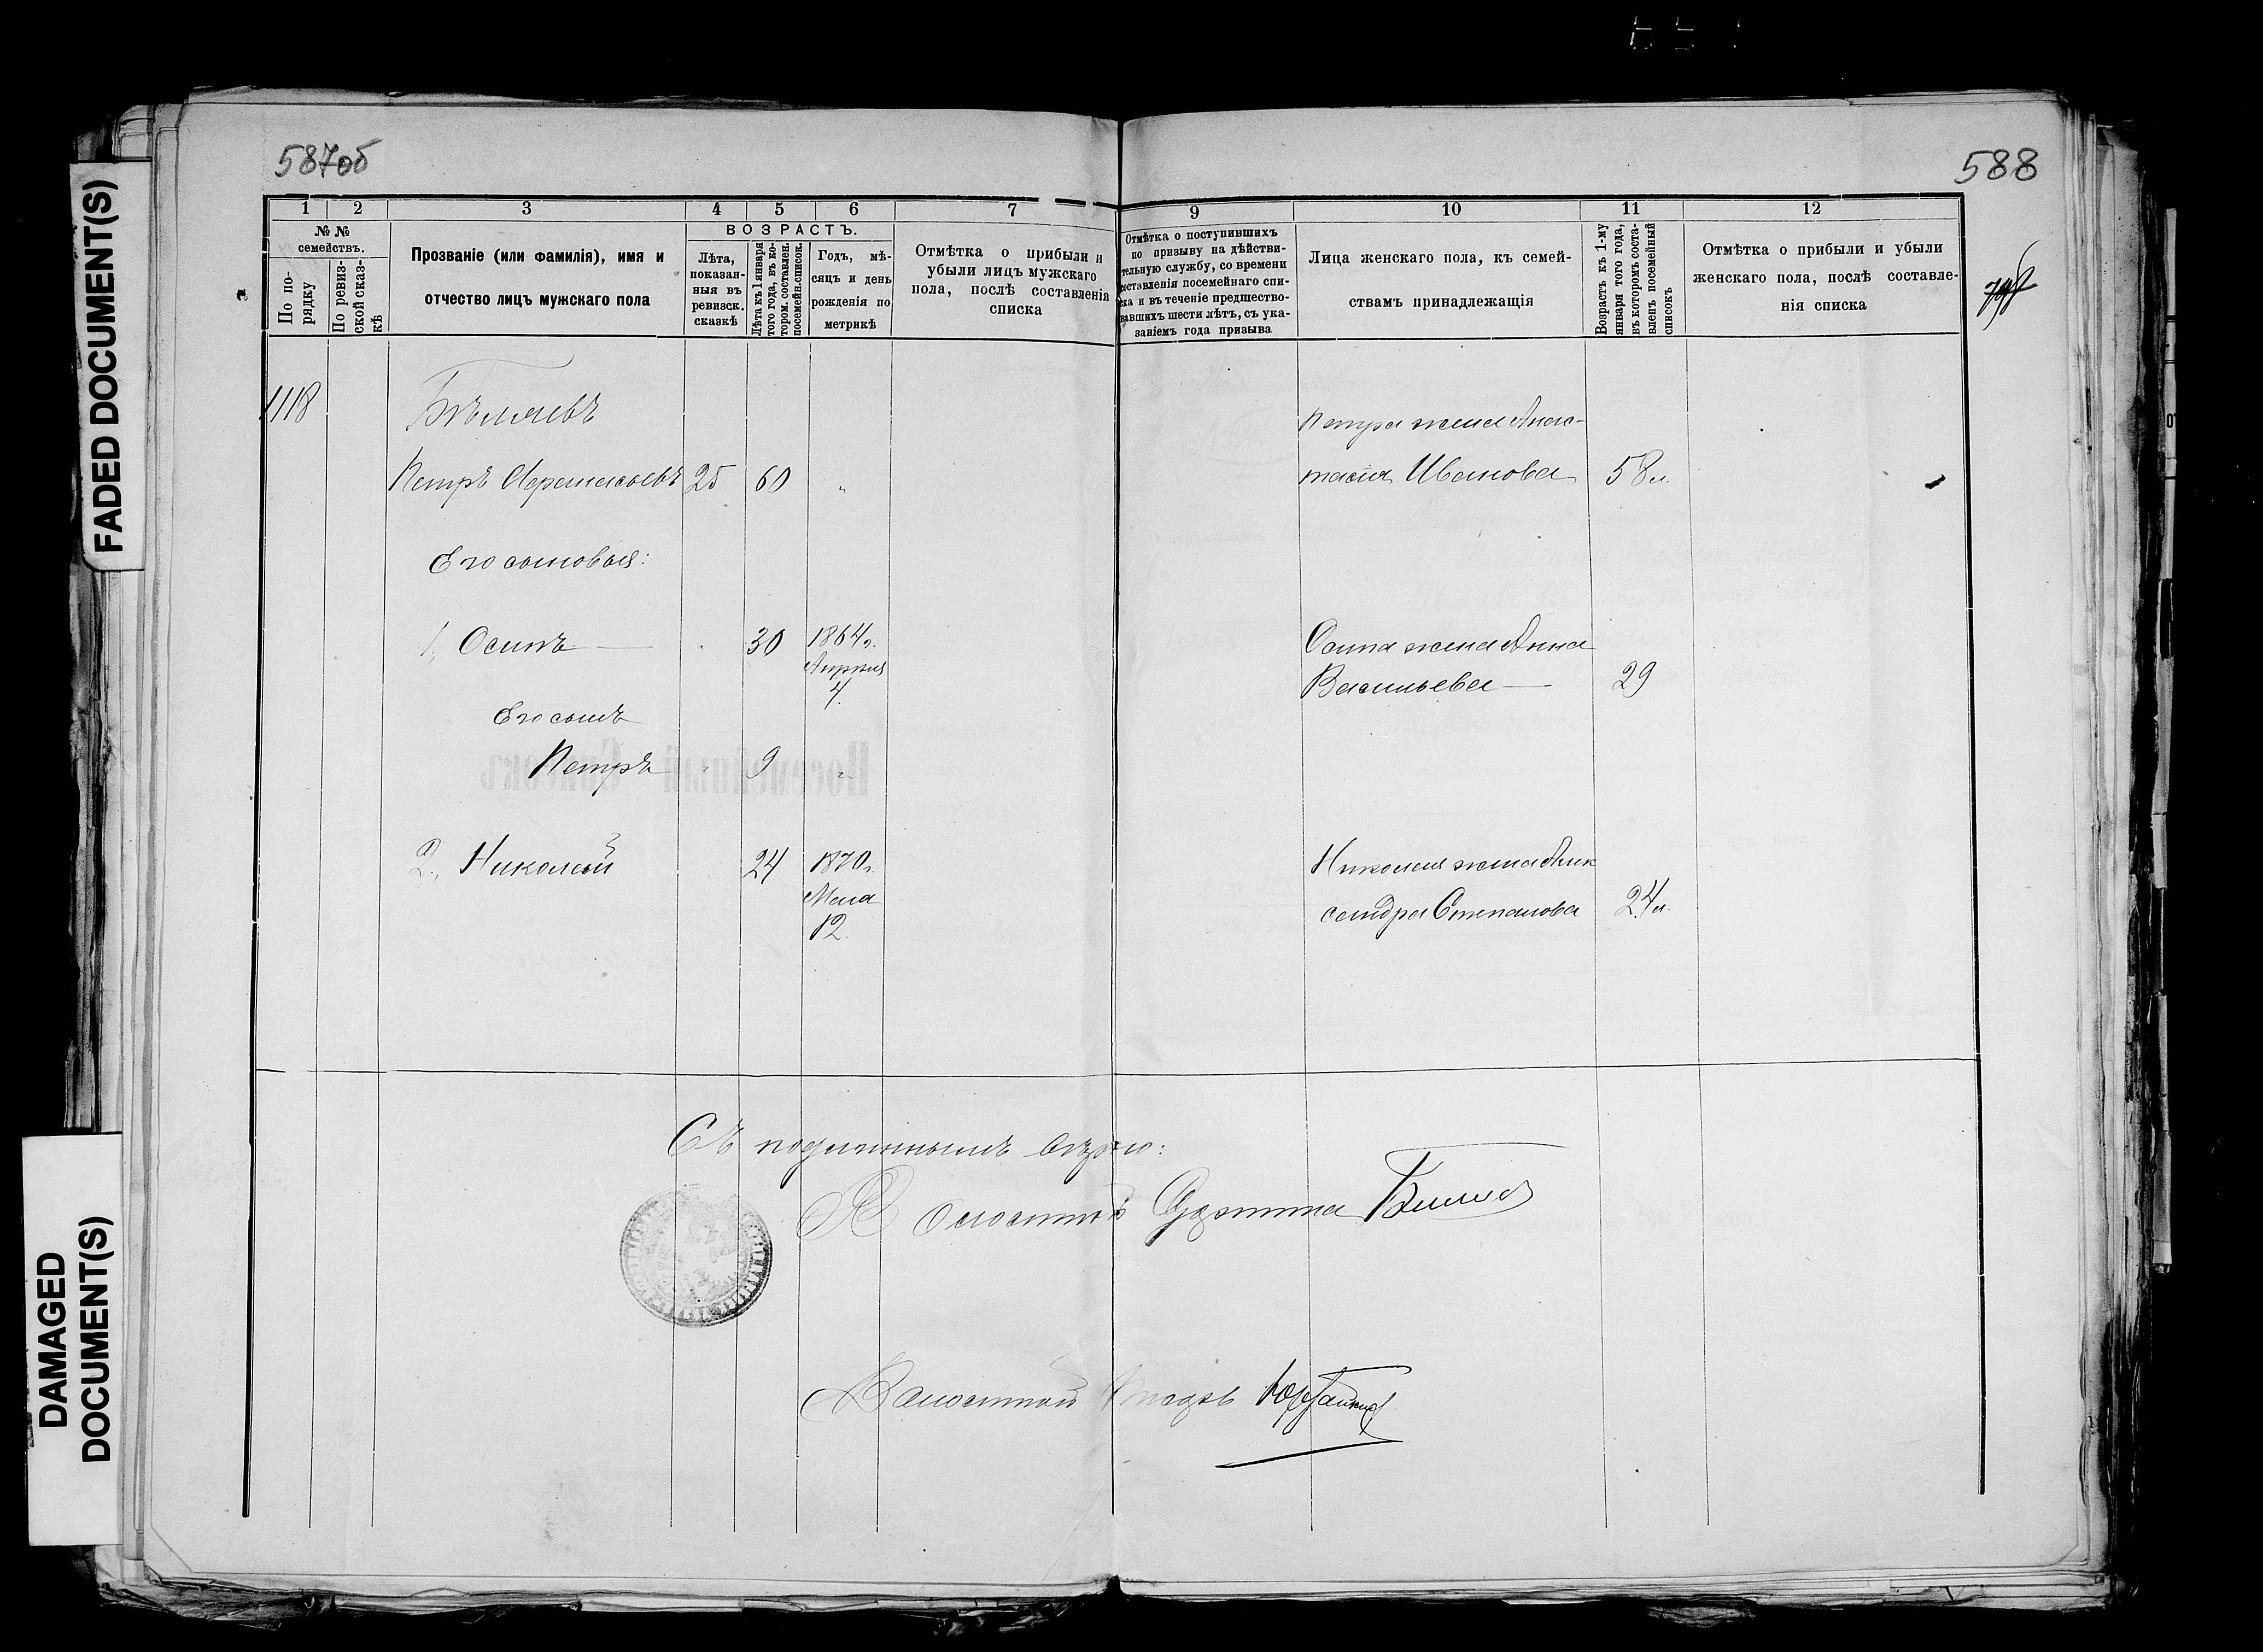 FADED DOCUMENT(S)
DAMAGED
DOCUMENT(S)
587об
588
1
2
3
4
5
6
7
9
10
11
12
№ №
семействъ.
По по-
рядку
По ревиз-
ской сказ-
кѣ
Прозваніе (или фамилія), имя и
отчество лицъ мужскаго пола
ВОЗРАСТЪ.
Лѣта,
показан-
ныя въ
ревизск.
сказкѣ
Лѣта къ 1 января
того года, въ ко-
тором. составлен.
посемейн. список.
Годъ, мѣ-
сяцъ и день
рожденія по
метрикѣ
Отмѣтка о прибыли и
убыли лицъ мужскаго
пола, послѣ составленія
списка
Отмѣтка о поступившихъ
по призыву на дѣйстви-
тельную службу, со времени
составленія посемейнаго спи-
ска и въ теченіе предшество-
вавшихъ шести лѣтъ, съ ука-
заніемъ года призыва
Лица женскаго пола, къ семей-
ствамъ принадлежащія
Возрастъ къ 1-му
января того года,
въ которомъ соста-
вленъ посемейный
списокъ
Отмѣтка о прибыли и убыли
женскаго пола, послѣ составле-
нія списка
1118
Бѣляевъ
Петра жена Анас-
Петръ 25 60 "
тасія Иванова 58 л.
Его сыновья:
1, Осипъ — " 30 1864 г.
Апрѣля
4.
Осипа жена Анна
Васильева — 29
Его сынъ
Петръ " 9 "
Посемейный Списокъ
2., Николай 24 1870 г.
Мая
12.
Николая жена Алек
сандра Степанова 24 л.
Съ подлиннымъ вѣрно:
Волостной Старшина
Волостной Писарь